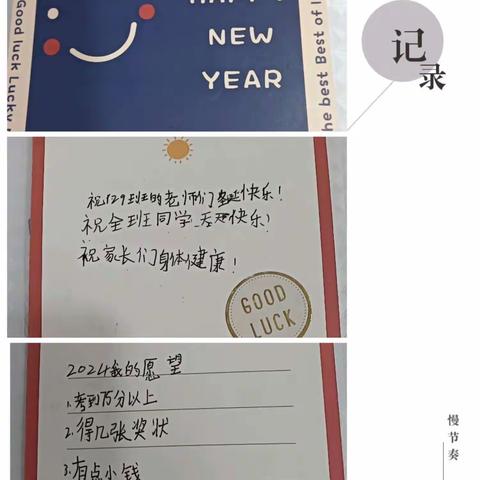 Good luck Lucky
HAPPY
NEW
YEAR
the best Best of l
记
录
祝129班的老师们快乐!
祝全班同学天天快乐!
祝家长们身体健康!
GOOD
LUCK
2024我的愿望
1.考到百分以上
2.得几张奖状
3.有点小钱
慢节奏